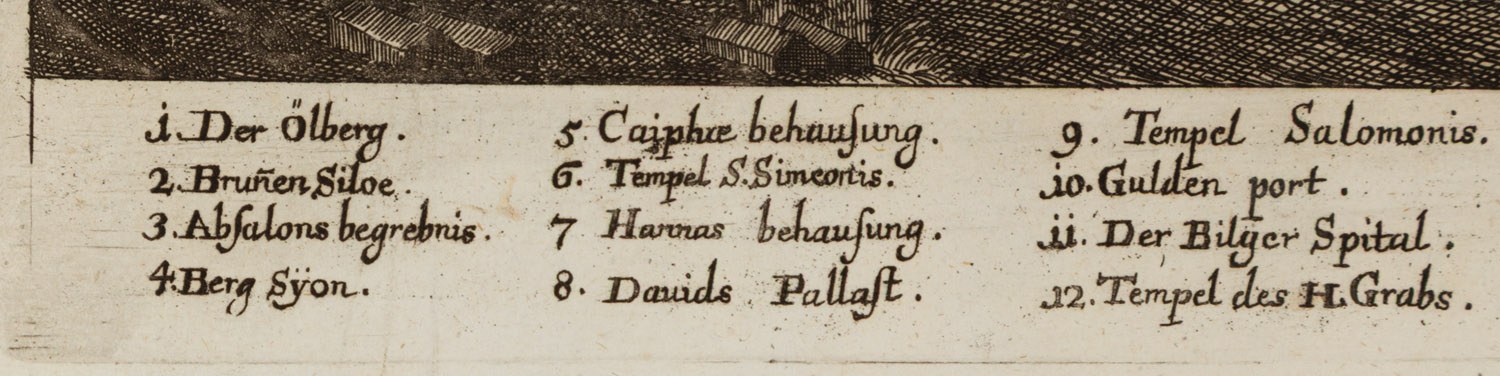 1. Der Ölberg.
2. Bruñen Siloe.
3. Abſalons begrebnis.
4. Berg Sÿon.
5. Caiphæ behauſung.
6. Tempel S. Simeonis.
7 Hannas behauſung.
8. Dauids Pallaſt.
9. Tempel Salomonis.
10. Gulden port.
11. Der Bilger Spital.
12. Tempel des H. Grabs.